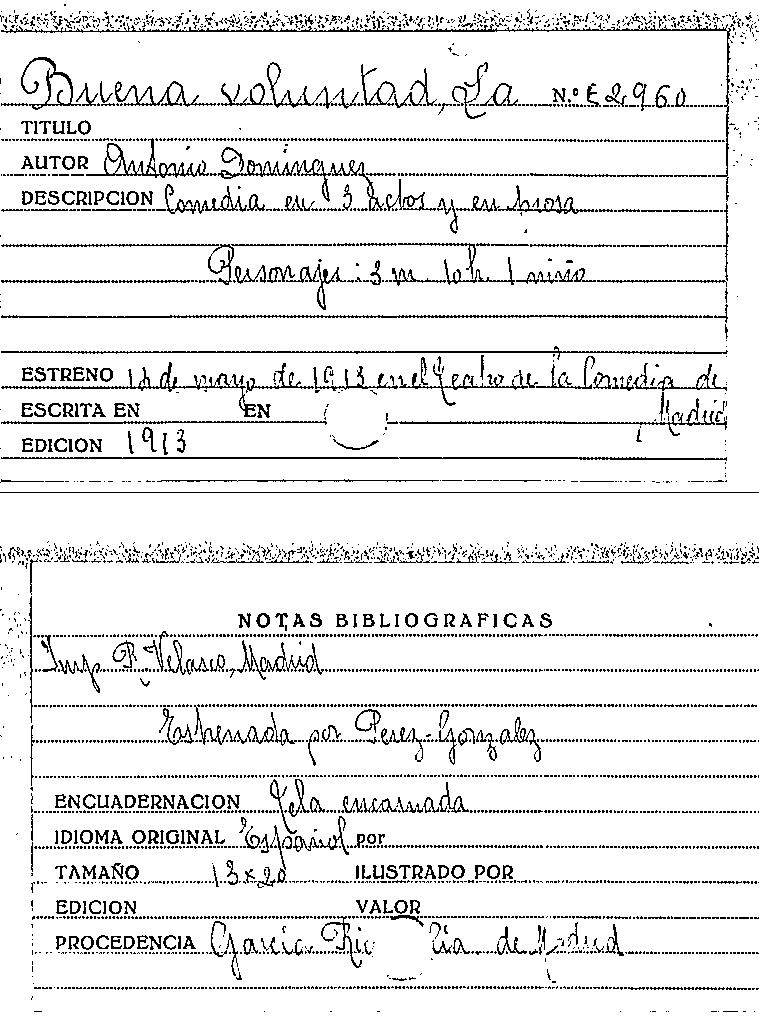 Buena voluntad, La N.º E 2,960
TITULO
AUTOR Antonio Dominguez
DESCRIPCION Comedia en 3 actos y en prosa
Personajes: 3 m. 10 h. 1 niño
ESTRENO de mayo de 1913 en el Teatro de la Comedia de
ESCRITA EN EN Madrid
EDICION 1913
NOTAS BIBLIOGRAFICAS
Imp R. Velasco, Madrid
Estrenada por Perez-Gonzalez
ENCUADERNACION Tela encarnada
IDIOMA ORIGINAL Español por
TAMAÑO 13 x 20 ILUSTRADO POR
EDICION VALOR
PROCEDENCIA Garcia de Madrid